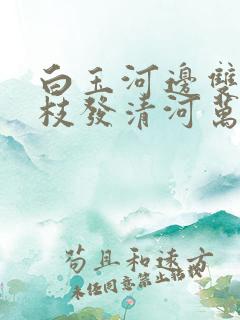 白玉河邊雙
枝發清河萬
苟且和遠方
未经同意禁止转载